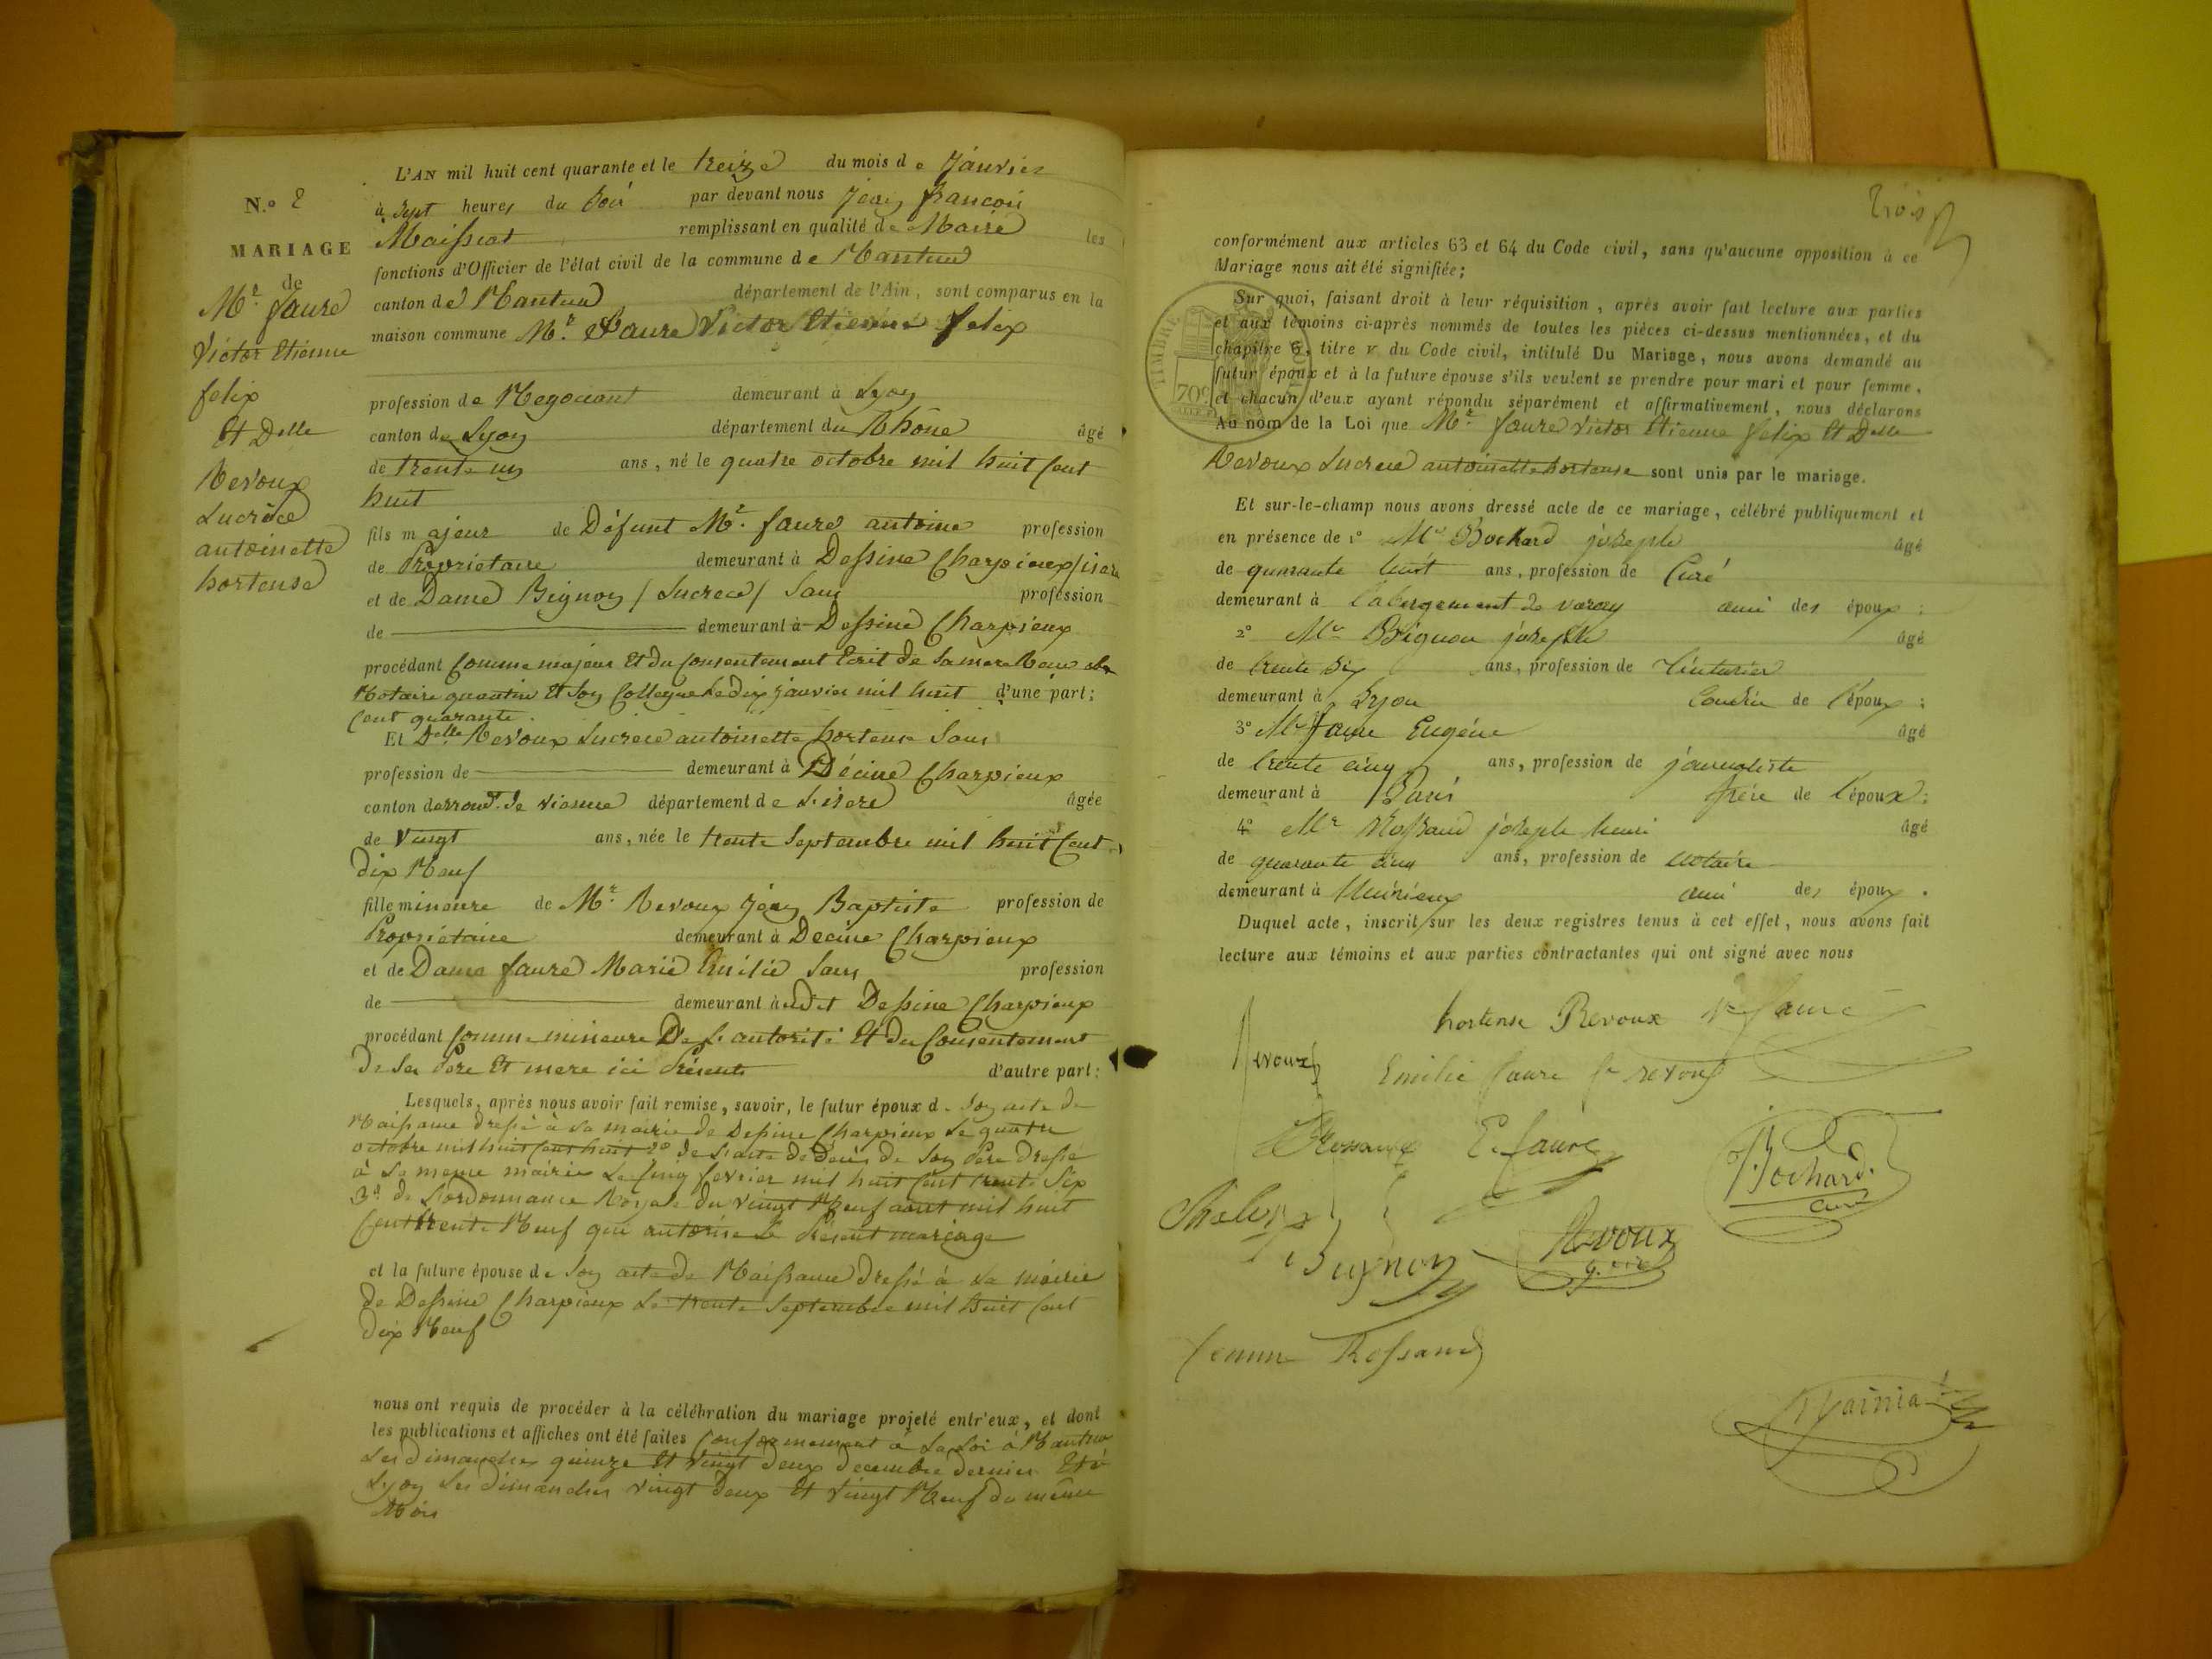 N.o 2
MARIAGE
de
Mr. faure
Victor Etienne
felix
Et Delle
Revoux
Lucrèce
antoinette
hortense
L'AN mil huit cent quarante et le treize du mois de Janvier
à Sept heures du Soir par devant nous Jean francois
Maissiat remplissant en qualité de Maire les
fonctions d'Officier de l'état civil de la commune de Nantua
canton de Nantua département de l'Ain, sont comparus en la
maison commune Mr. Faure Victor Etienne felix
profession de Negociant demeurant à Lyon
canton de Lyon département du Rhône âgé
de trente un ans, né le quatre octobre mil huit Cent
huit
fils majeur de Défunt Mr. faure antoine profession
de Propriétaire demeurant à Dessine Charpieux/isere
et de Dame Bignon / Lucrece / Sans profession
de demeurant à Dessine Charpieux
procédant Comme majeur Et du Consentement Ecrit de Sa mere
Notaire quantin Et Son Collegue Le dix janvier mil huit d'une part;
Cent quarante.
Et Delle Revoux Lucrece antoinette hortense Sans
profession de demeurant à Décine Charpieux
canton darrondt. de vienne département de L'isere âgée
de Vingt ans, née le trente Septembre mil huit Cent
dix Neuf
fille mineure de Mr. Revoux Jean Baptiste profession de
Propriétaire demeurant à Decine Charpieux
et de Dame faure Marie Emilie Sans profession
de demeurant audit Dessine Charpieux
procédant Comme mineure De L'autorité Et du Consentement
De Ses Pere Et mere ici Présents d'autre part;
Lesquels, après nous avoir fait remise, savoir, le futur époux de Son acte de
Naissance dressé à La mairie de Dessine Charpieux Le quatre
octobre mil huit Cent huit 2o De L'acte de Décès de Son Pere Dressé
à La meme mairie Le Cinq fevrier mil huit Cent trente Six
3o de L'ordonnance Royale du vingt Neuf aout mil huit
Cent trente Neuf qui autorise Le Présent mariage
et la future épouse de Son acte de Naissance dressé à La mairie
de Dessine Charpieux Le trente Septembre mil huit Cent
dix Neuf
nous ont requis de procéder à la célébration du mariage projeté entr'eux, et dont
les publications et affiches ont été faites Conformement à La Loi à Nantua
Les dimanches quinze Et Vingt deux decembre dernier Et à
Lyon Les dimanches vingt deux Et Vingt Neuf du même
Mois
trois
conformément aux articles 63 et 64 du Code civil, sans qu'aucune opposition à ce
Mariage nous ait été signifiée;
TIMBRE
70c
Sur quoi, faisant droit à leur réquisition, après avoir fait lecture aux parties
et aux témoins ci-après nommés de toutes les pièces ci-dessus mentionnées, et du
chapitre 6, titre v du Code civil, intitulé Du Mariage, nous avons demandé au
futur époux et à la future épouse s'ils veulent se prendre pour mari et pour femme,
et chacun d'eux ayant répondu séparément et affirmativement, nous déclarons
Au nom de la Loi que Mr. faure victor Etienne felix Et Delle
Revoux Lucrece antoinette hortense sont unis par le mariage.
Et sur-le-champ nous avons dressé acte de ce mariage, célébré publiquement et
en présence de 1o Mr Bochard joseph âgé
de quarante huit ans, profession de Curé
demeurant à l'abergement de varey ami des époux;
2o Mr Bignon joseph âgé
de trente six ans, profession de teinturier
demeurant à Lyon Cousin de l'époux;
3o Mr faure Eugéne âgé
de trente cinq ans, profession de journaliste
demeurant à Paris frère de l'époux;
4o Mr Rossand joseph henri âgé
de quarante cinq ans, profession de notaire
demeurant à ami des époux.
Duquel acte, inscrit sur les deux registres tenus à cet effet, nous avons fait
lecture aux témoins et aux parties contractantes qui ont signé avec nous
hortense Revoux Vr faure
Revoux Emilie faure fe revoux
E. faure
Bochard
curé
Bignon Revoux
femme Rossand